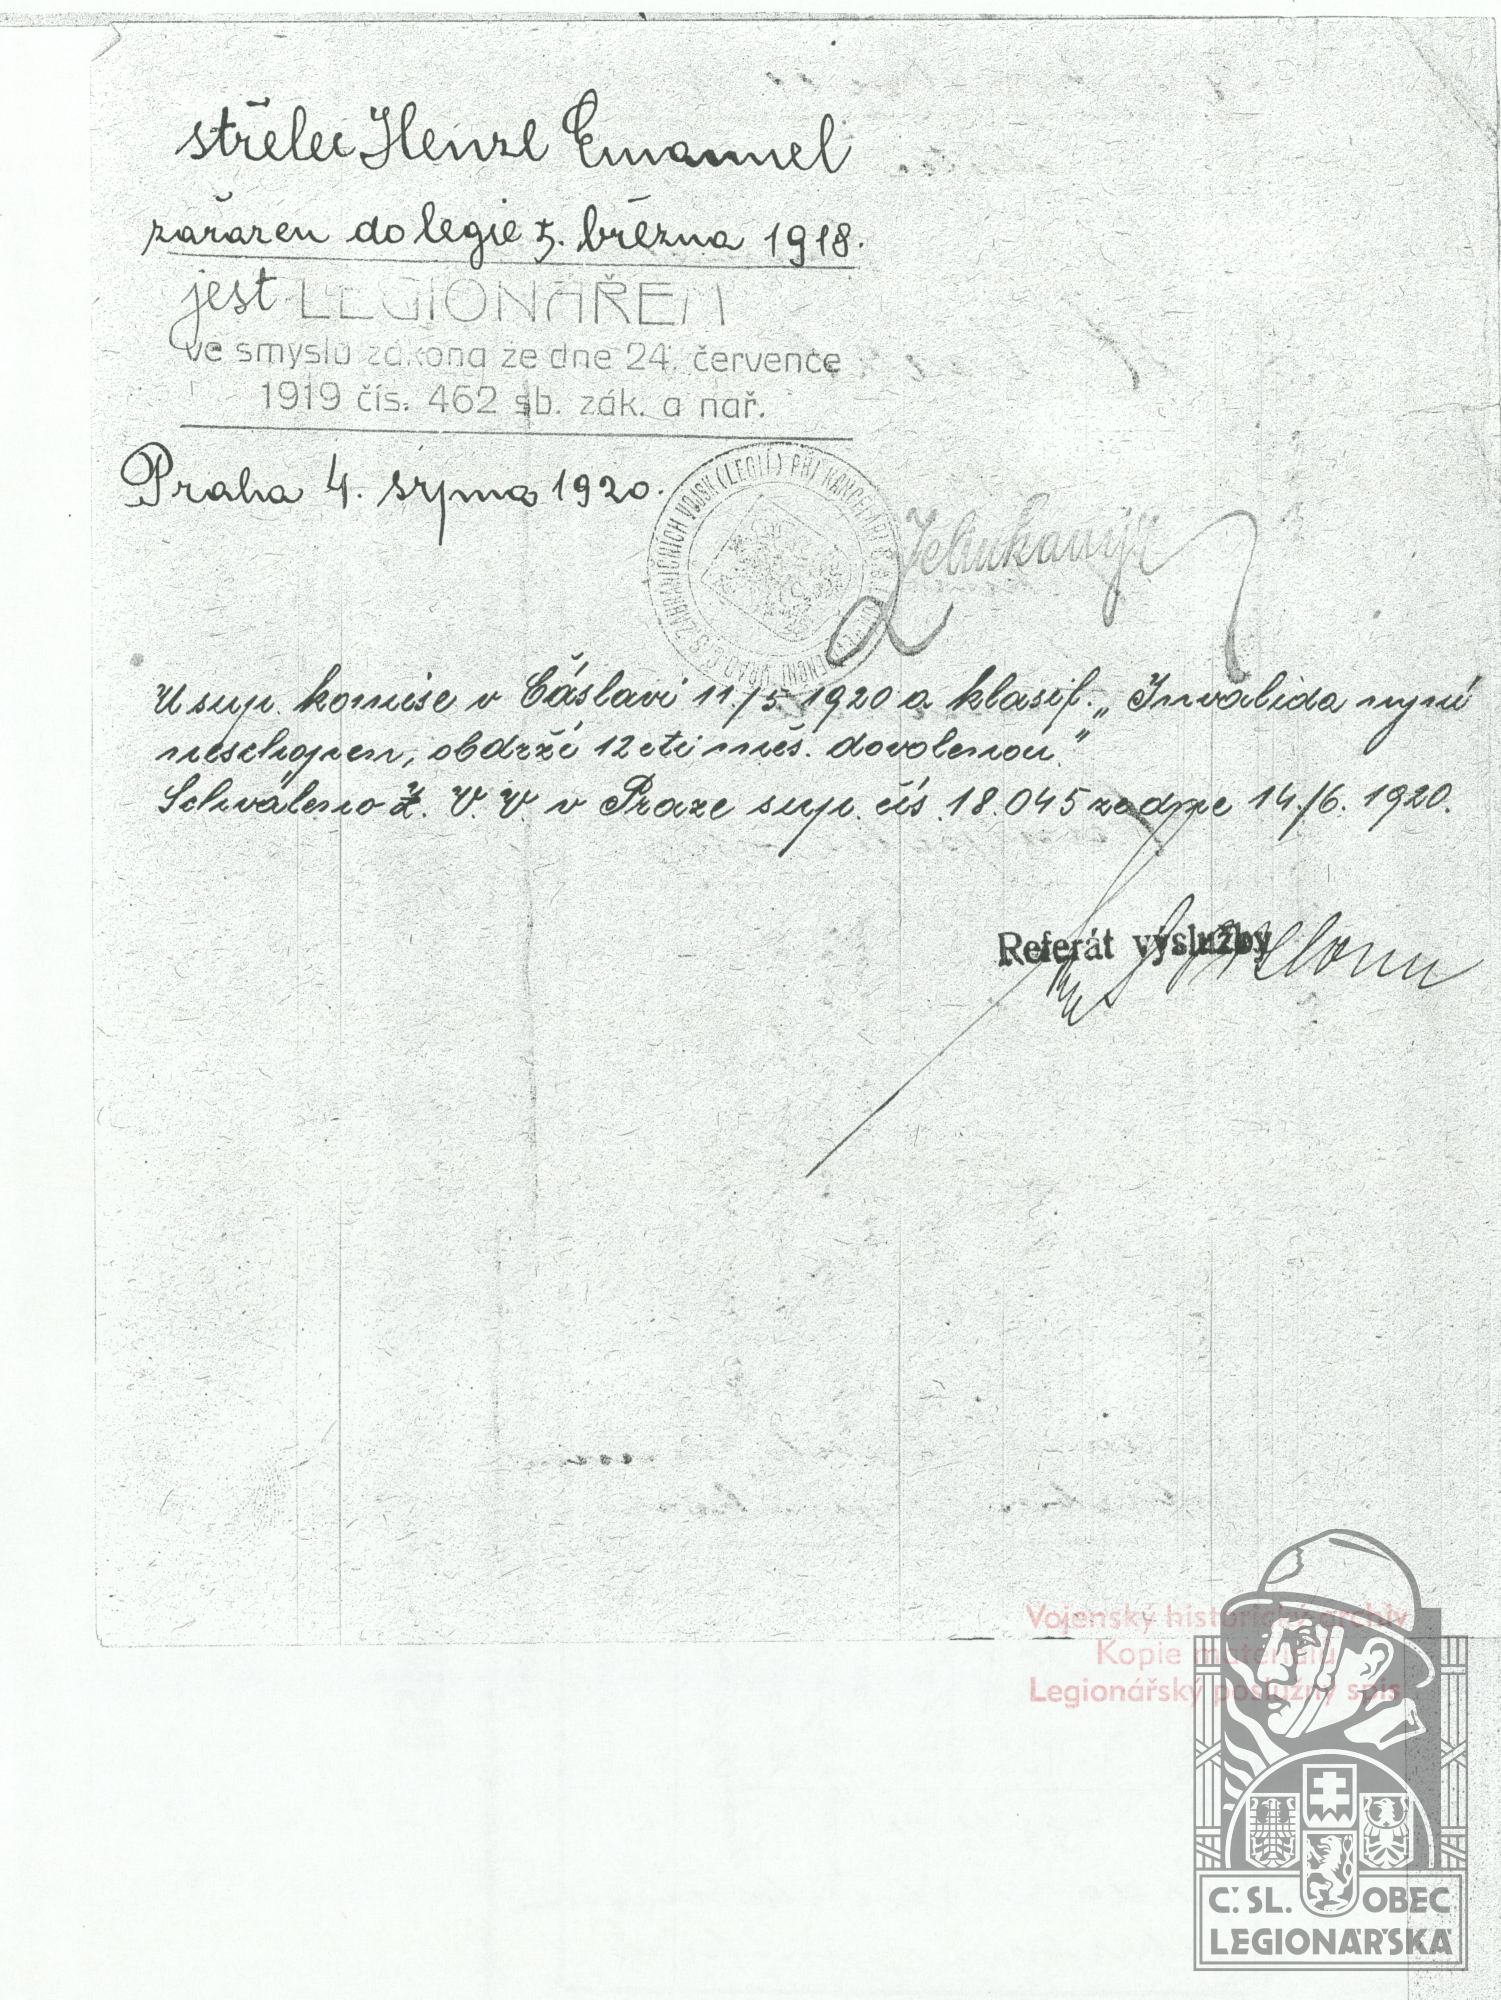 střelec Henzl Emanuel
zařazen do legie 5. března 1918.
jest LEGIONÁŘEM
ve smyslu zákona ze dne 24. července
1919 čís. 462 sb. zák. a nař.
Praha 4. srpna 1920.
ZAHRANIČNÍCH VOJSK (LEGIÍ) PŘI KANCELÁŘI
U sup. komise v Čáslavi 11./5 1920 a klasif. „Invalida nyní
neschopen, obdrží 12cti měs. dovolenou."
Schváleno Z. V. V. v Praze sup. čís. 18.045 ze dne 14./6. 1920.
Referát výslužby
Vojenský historický archiv
Kopie materiálu
Legionářský poslužný spis
Č. SL. OBEC
LEGIONÁŘSKÁ